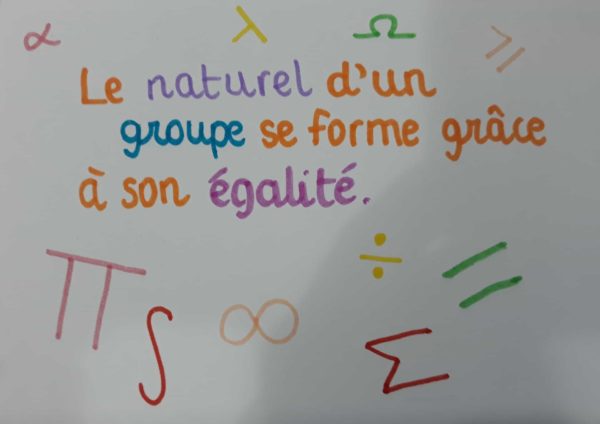 α λ Ω ⩾
Le naturel d'un
groupe se forme grâce
à son égalité.
÷ =
∏ ∫ ∞ Σ